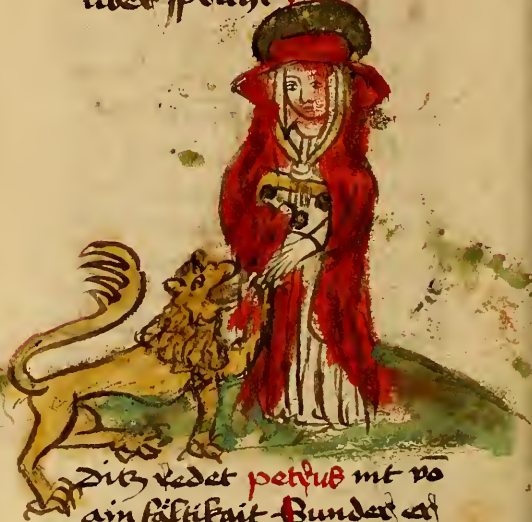 Ditz redet petrus nit vō
ain fältikait Sunder er